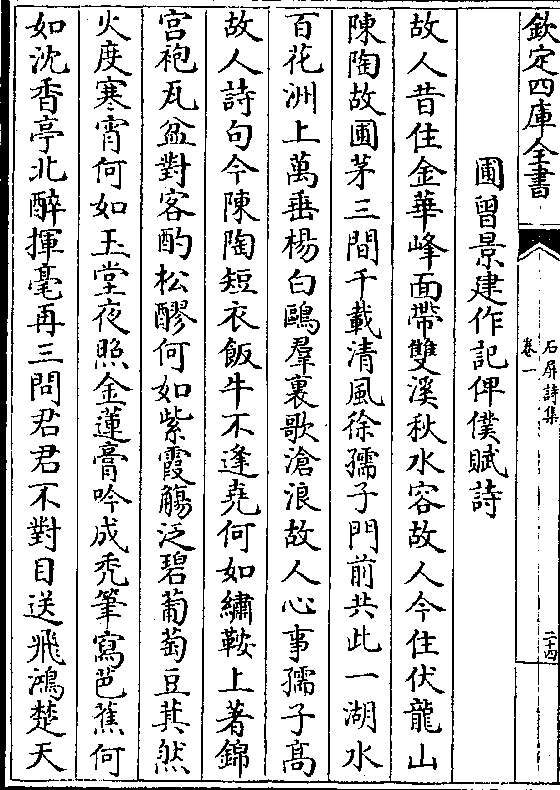 欽定四庫全書
石屏詩集
卷一
二十四
圃曾景建作記俾僕賦詩
故人昔住金華峰面帶雙溪秋水容故人今住伏龍山
陳陶故圃茅三間千載清風徐孺子門前共此一湖水
百花洲上萬垂楊白鷗羣裏歌滄浪故人心事孺子高
故人詩句今陳陶短衣飯牛不逢堯何如繡鞍上著錦
宫袍瓦盆對客酌松醪何如紫霞觴泛碧葡萄豆萁然
火度寒宵何如玉堂夜照金蓮膏吟成秃筆寫芭蕉何
如沈香亭北醉揮毫再三問君君不對目送飛鴻楚天